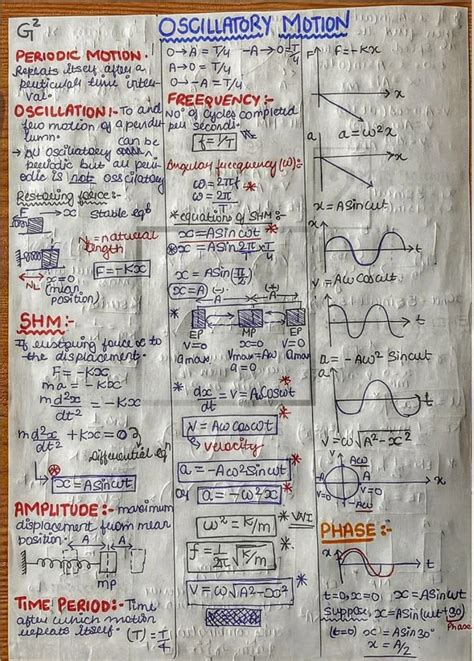 G²
OSCILLATORY MOTION
PERIODIC MOTION.
Repeats itself after a
particular time inter-
val.
OSCILLATION:- To and
fro motion of a pendu
lum.
→ All oscillatory can be
periodic but all peri-
odic is not osscilatory
Restoring force:-
F → x stable eqb
N = natural
length
NL x=0
(mean
position)
F=-Kx
SHM:-
If restoring force ∝ to
the displacement.
F = -Kx
ma = -Kx
md²x/dt² = -Kx
md²x/dt² + Kx = 0
Differential eqn
x = ASinωt
AMPLITUDE:- maximum
displacement from mean
position.
A A
MP
TIME PERIOD:- Time
after which motion
repeats itself. (T) = T/4
O→A = T/4 -A→O = T/4
A→O = T/4
O→-A = T/4
FREEQUENCY:-
No° of cycles completed
per second.
f = 1/T
Angular frequency (ω):-
ω = 2πf
ω = 2π/T
*equation of SHM:-
x = ASinωt
x = ASin 2π/T × T/4
x = ASin(π/2)
x = A
(-) (+)
A A
EP MP EP
v=0 x=0 v=0
amax vmax = Aω amax
a=0
dx/dt = v = Aωcosωt
v = Aωcosωt
velocity
a = -Aω²sinωt
or a = -ω²x
ω² = K/m VVI
f = 1/2π √K/m
v = ω√A²-x²
F
f=-Kx
x
a
a=ω²x
x
x = ASinωt
t
v = Aωcosωt
t
a = -Aω²Sinωt
t
v = ω√A²-x²
Aω
v=0 v=0
Aω
PHASE:-
x
t
t=0, x=0 x=ASinωt
Suppose x=ASin(ωt+30)
Phase
(t=0) x = ASin30°
x = A/2